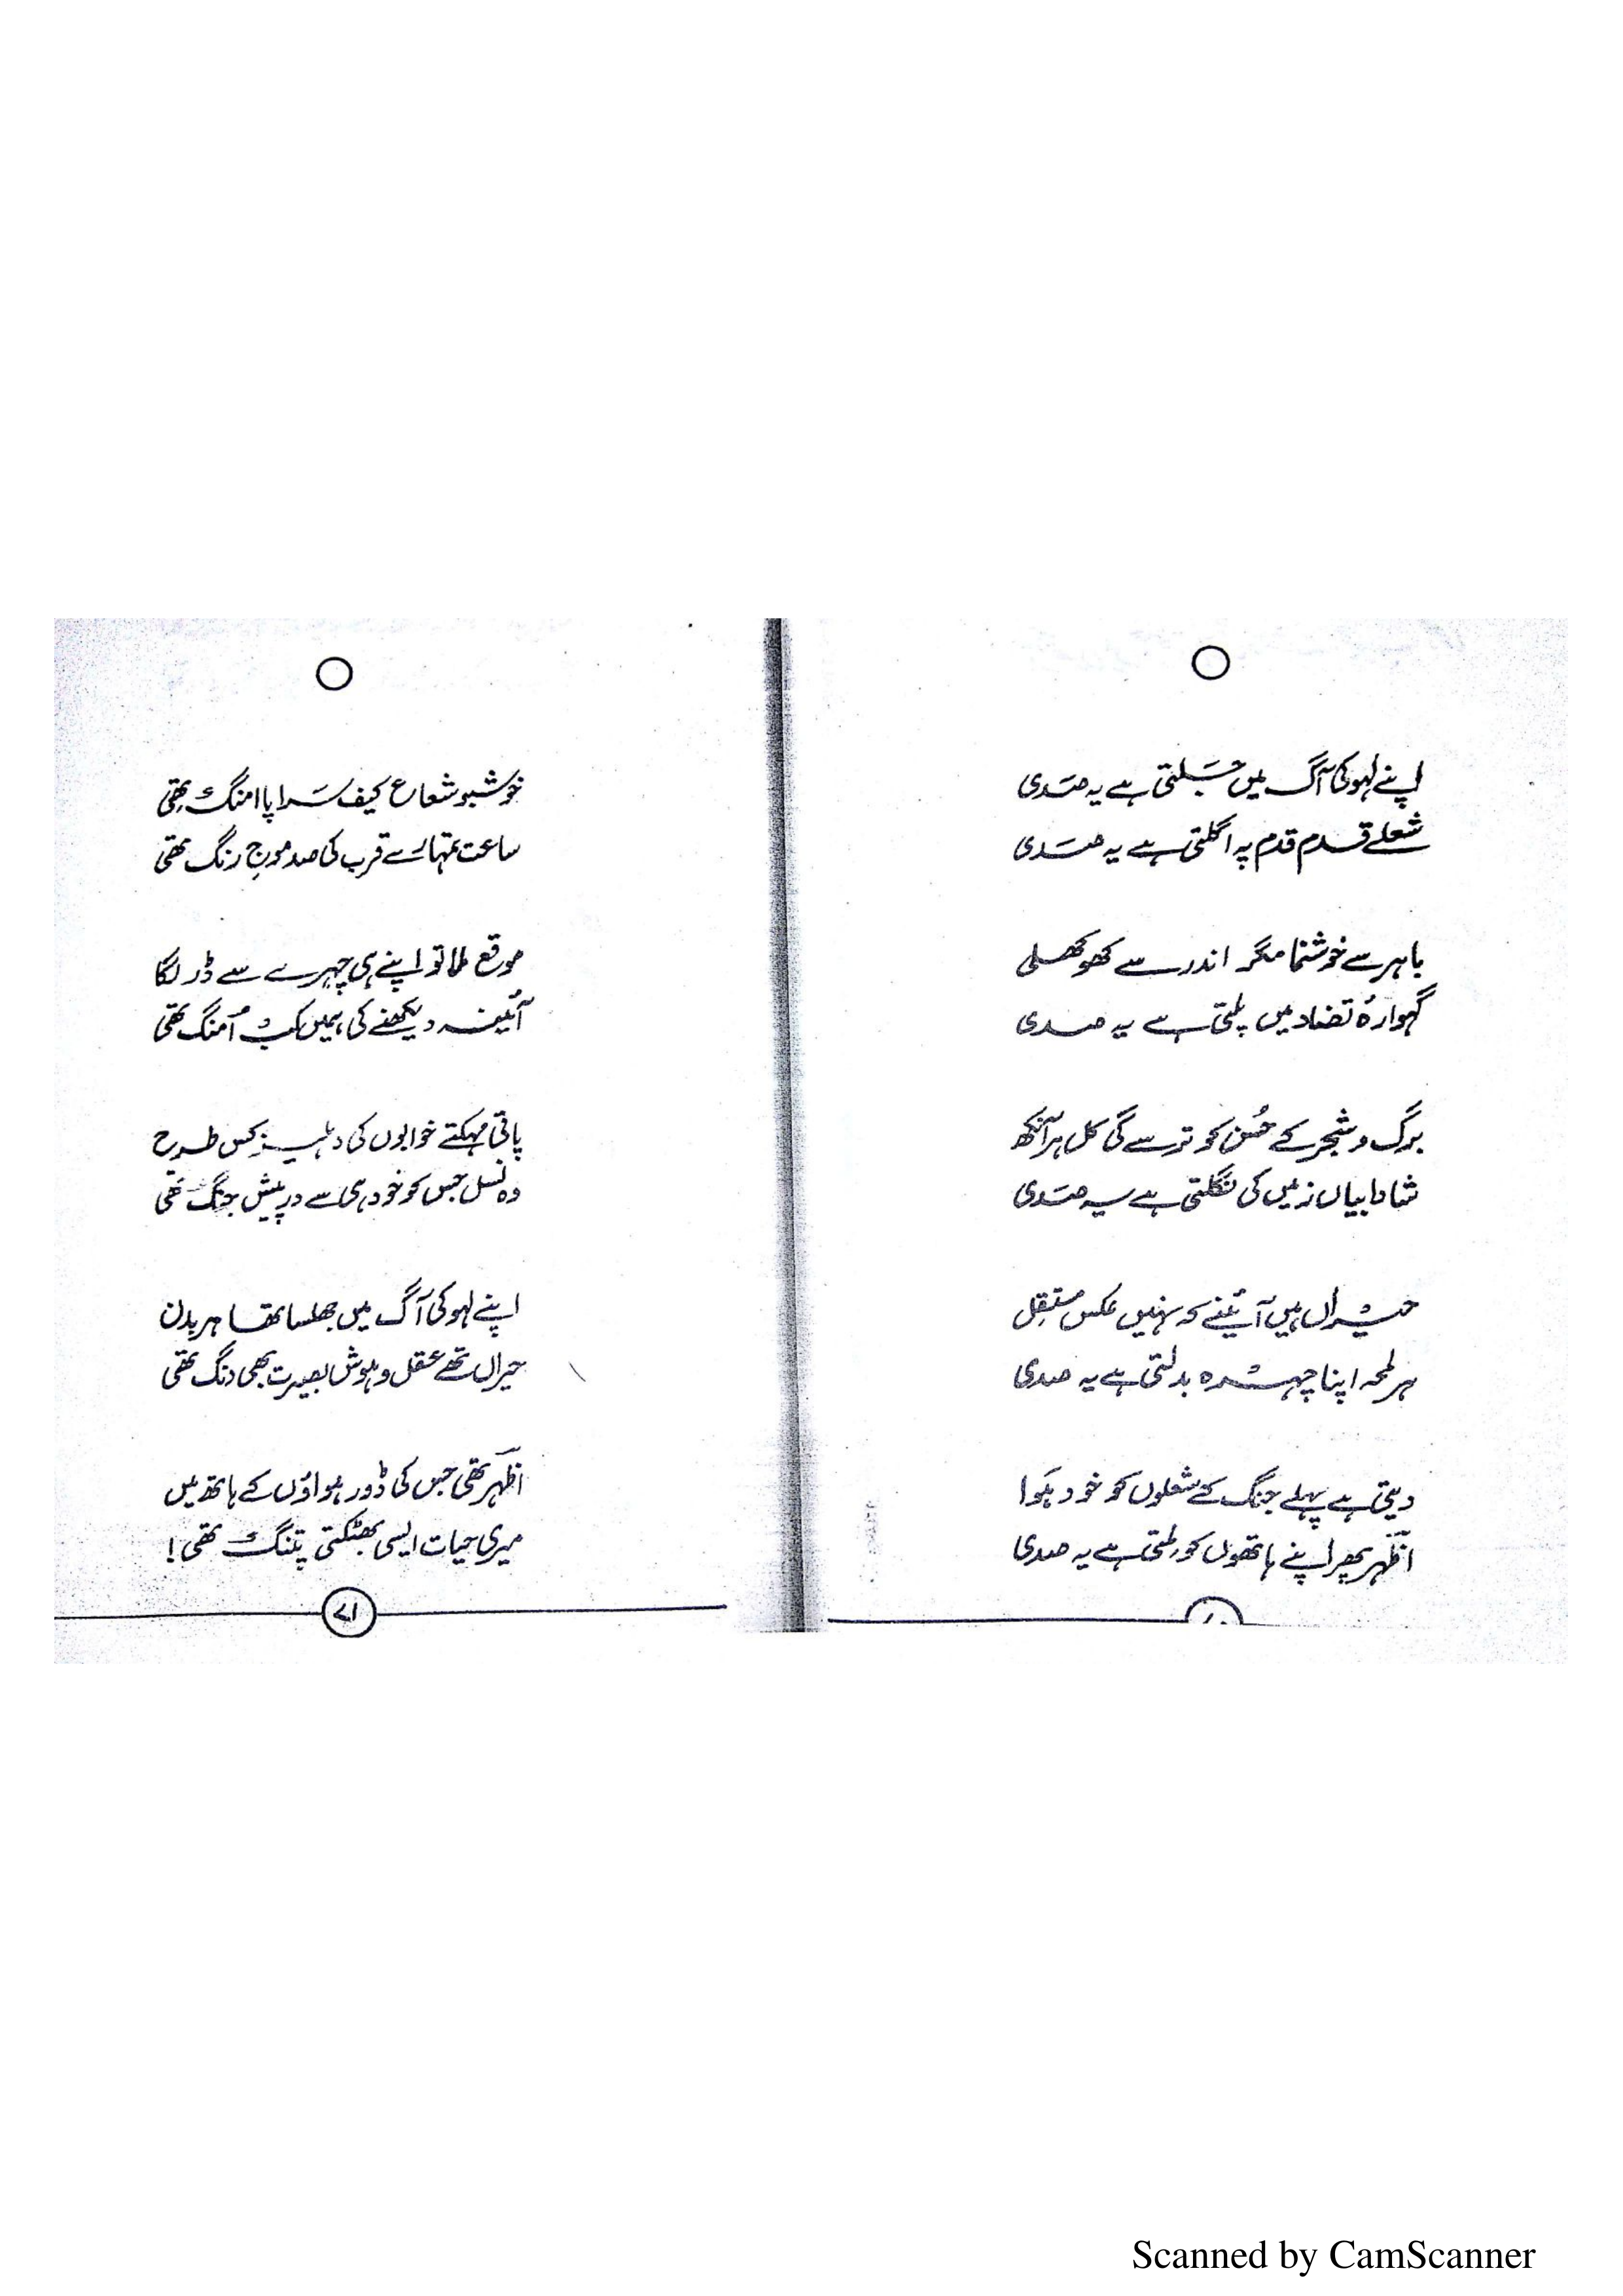 اپنے لہو کی آگ میں جلتی ہے یہ صدی
شعلے قدم قدم پہ اگلتی ہے یہ صدی
باہر سے خوشنما مگر اندر سے کھوکھلی
گہوارۂ تضاد میں پلتی ہے یہ صدی
برگ و شجر کے حُسن کو ترسے گی کل ہر آنکھ
شادابیاں زمیں کی نگلتی ہے یہ صدی
حیراں ہیں آئینے کہ نہیں عکس مستقِل
ہر لمحہ اپنا چہرہ بدلتی ہے یہ صدی
دیتی ہے پہلے جنگ کے شعلوں کو خود ہَوا
اظہر پھر اپنے ہاتھوں کو ملتی ہے یہ صدی
خوشبو شعاع کیف سَراپا امنگ تھی
ساعت تمہارے قرب کی صد موجِ رنگ تھی
موقع ملا تو اپنے ہی چہرے سے ڈر لگا
آئینہ دیکھنے کی ہمیں کب اُمنگ تھی
پاتی مہکتے خوابوں کی دہلیز کس طرح
وہ نسل جس کو خود ہی سے درپیش جنگ تھی
اپنے لہو کی آگ میں جھلسا تھا ہر بدن
حیراں تھے عقل و ہوش بصیرت بھی دنگ تھی
اظہر تھی جس کی ڈور ہواؤں کے ہاتھ میں
میری حیات ایسی بھٹکتی پتنگ تھی!
۷۱
Scanned by CamScanner